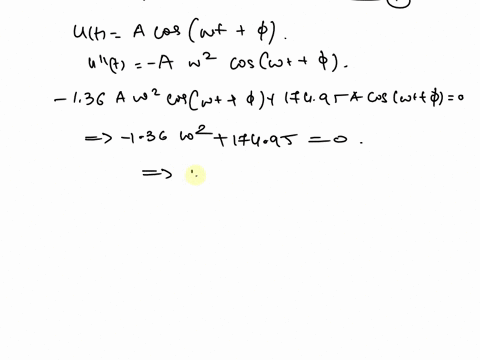 u(t) = A cos(ωt + φ).
u''(t) = -A ω² cos(ωt + φ).
-1.36 A ω² cos(ωt + φ) + 174.95 A cos(ωt + φ) = 0
=> -1.36 ω² + 174.95 = 0.
=>